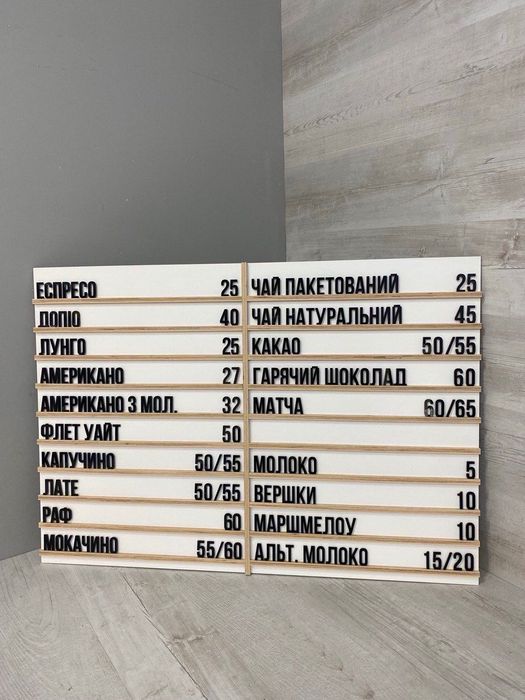 ЕСПРЕСО 25
ДОПІО 40
ЛУНГО 25
АМЕРИКАНО 27
АМЕРИКАНО З МОЛ. 32
ФЛЕТ УАЙТ 50
КАПУЧИНО 50/55
ЛАТЕ 50/55
РАФ 60
МОКАЧИНО 55/60
ЧАЙ ПАКЕТОВАНИЙ 25
ЧАЙ НАТУРАЛЬНИЙ 45
КАКАО 50/55
ГАРЯЧИЙ ШОКОЛАД 60
МАТЧА 60/65
МОЛОКО 5
ВЕРШКИ 10
МАРШМЕЛОУ 10
АЛЬТ. МОЛОКО 15/20